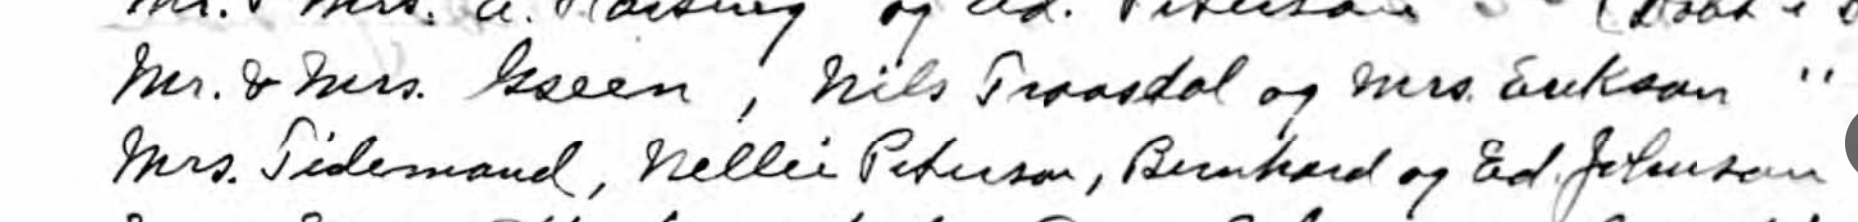 Mr. & Mrs. A. og Ed. Peterson
Mr. & Mrs. Isseen, Nils Traasdal og Mrs. Erikson "
Mrs. Tidemand, Nellie Peterson, Bernhard og Ed. Johnson